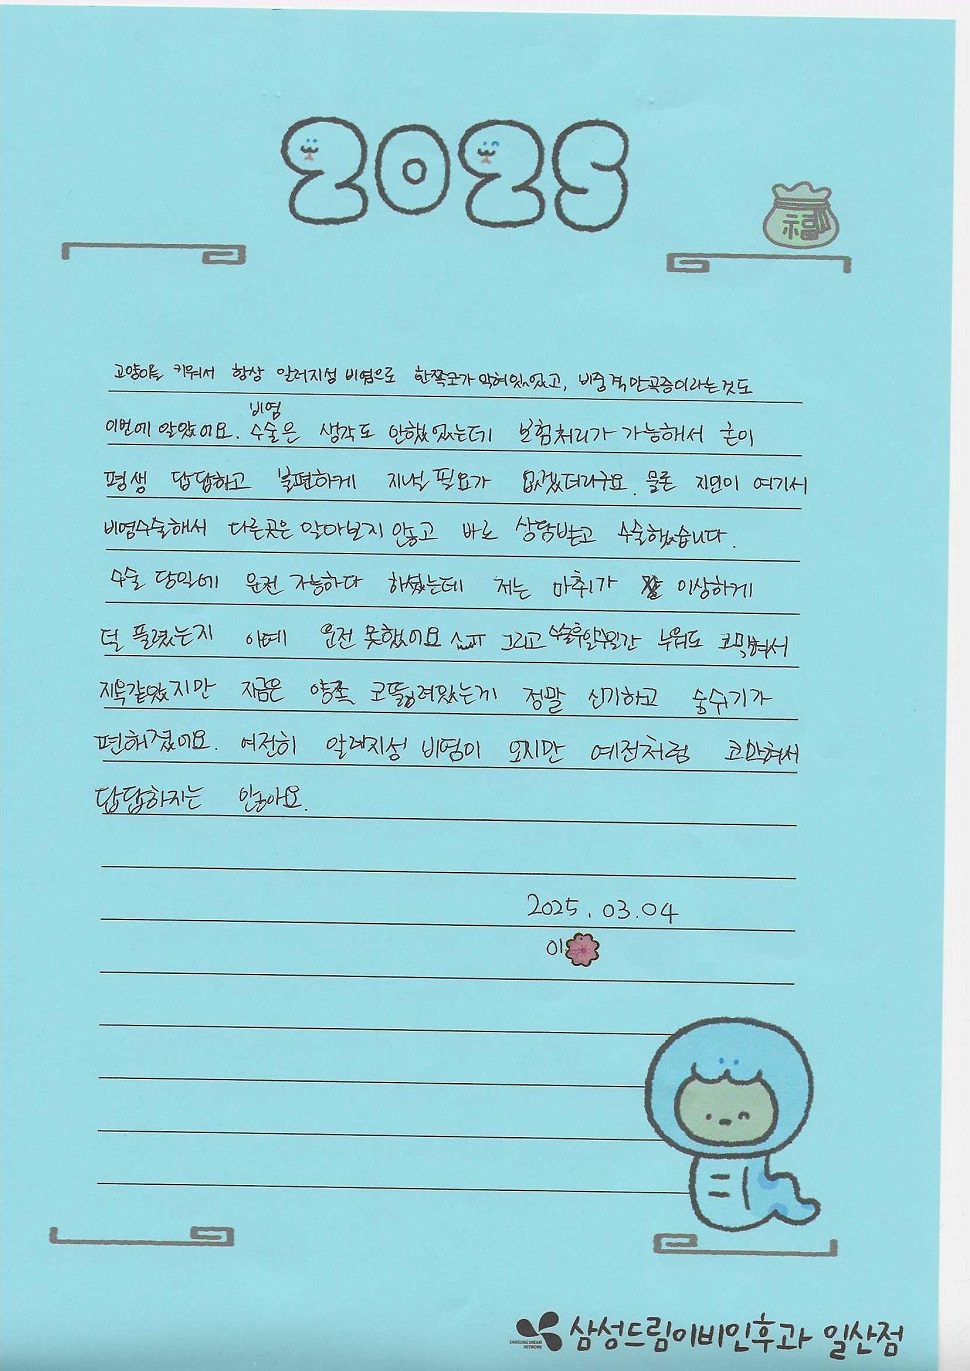 2025
福
고양이를 키워서 항상 알러지성 비염으로 한쪽코가 막혀있었고, 비중격만곡증이라는것도
비염
이번에 알았어요. 수술은 생각도 안했었는데 보험처리가 가능해서 굳이
평생 답답하고 불편하게 지낼 필요가 없겠더라구요. 물론 지인이 여기서
비염수술해서 다른곳은 알아보지 않고 바로 상담받고 수술했습니다.
수술 당일에 운전 가능하다 하셨는데 저는 마취가 이상하게
덜 풀렸는지 아예 운전 못했어요 ㅠㅠ 그리고 수술후일주일간 누워도 코막혀서
지옥같았지만 지금은 양쪽 코뚫려있는게 정말 신기하고 숨쉬기가
편해졌어요. 여전히 알레지성 비염이 오지만 예전처럼 코막혀서
답답하지는 않아요.
2025.03.04
이
SAMSUNG DREAM NETWORK 삼성드림이비인후과 일산점